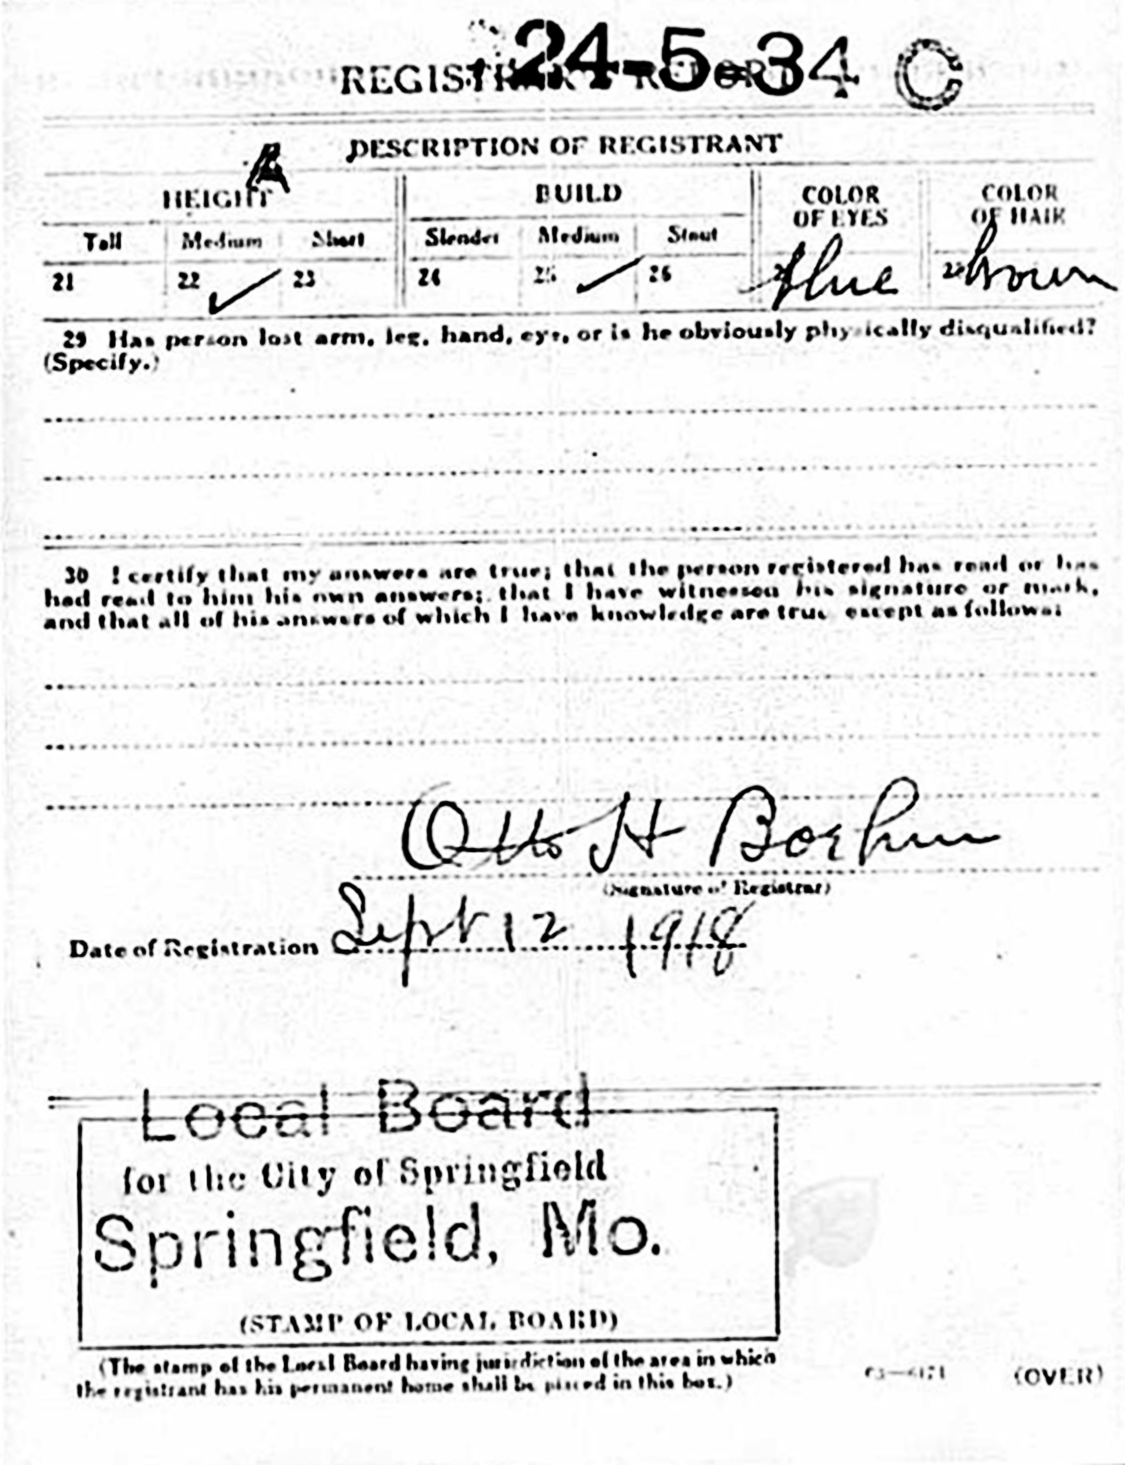 24-5-34 C
REGISTRAR'S REPORT
DESCRIPTION OF REGISTRANT
A
HEIGHT BUILD COLOR OF EYES COLOR OF HAIR
Tall Medium Short Slender Medium Stout
21 22 ✓ 23 24 25 ✓ 26 blue brown
29 Has person lost arm, leg, hand, eye, or is he obviously physically disqualified?
(Specify.)
30 I certify that my answers are true; that the person registered has read or has
had read to him his own answers; that I have witnessed his signature or mark,
and that all of his answers of which I have knowledge are true except as follows:
Otto H Boehm
(Signature of Registrar)
Date of Registration Sept 12 1918
Local Board
for the City of Springfield
Springfield, Mo.
(STAMP OF LOCAL BOARD)
(The stamp of the Local Board having jurisdiction of the area in which
the registrant has his permanent home shall be placed in this box.)
(OVER)